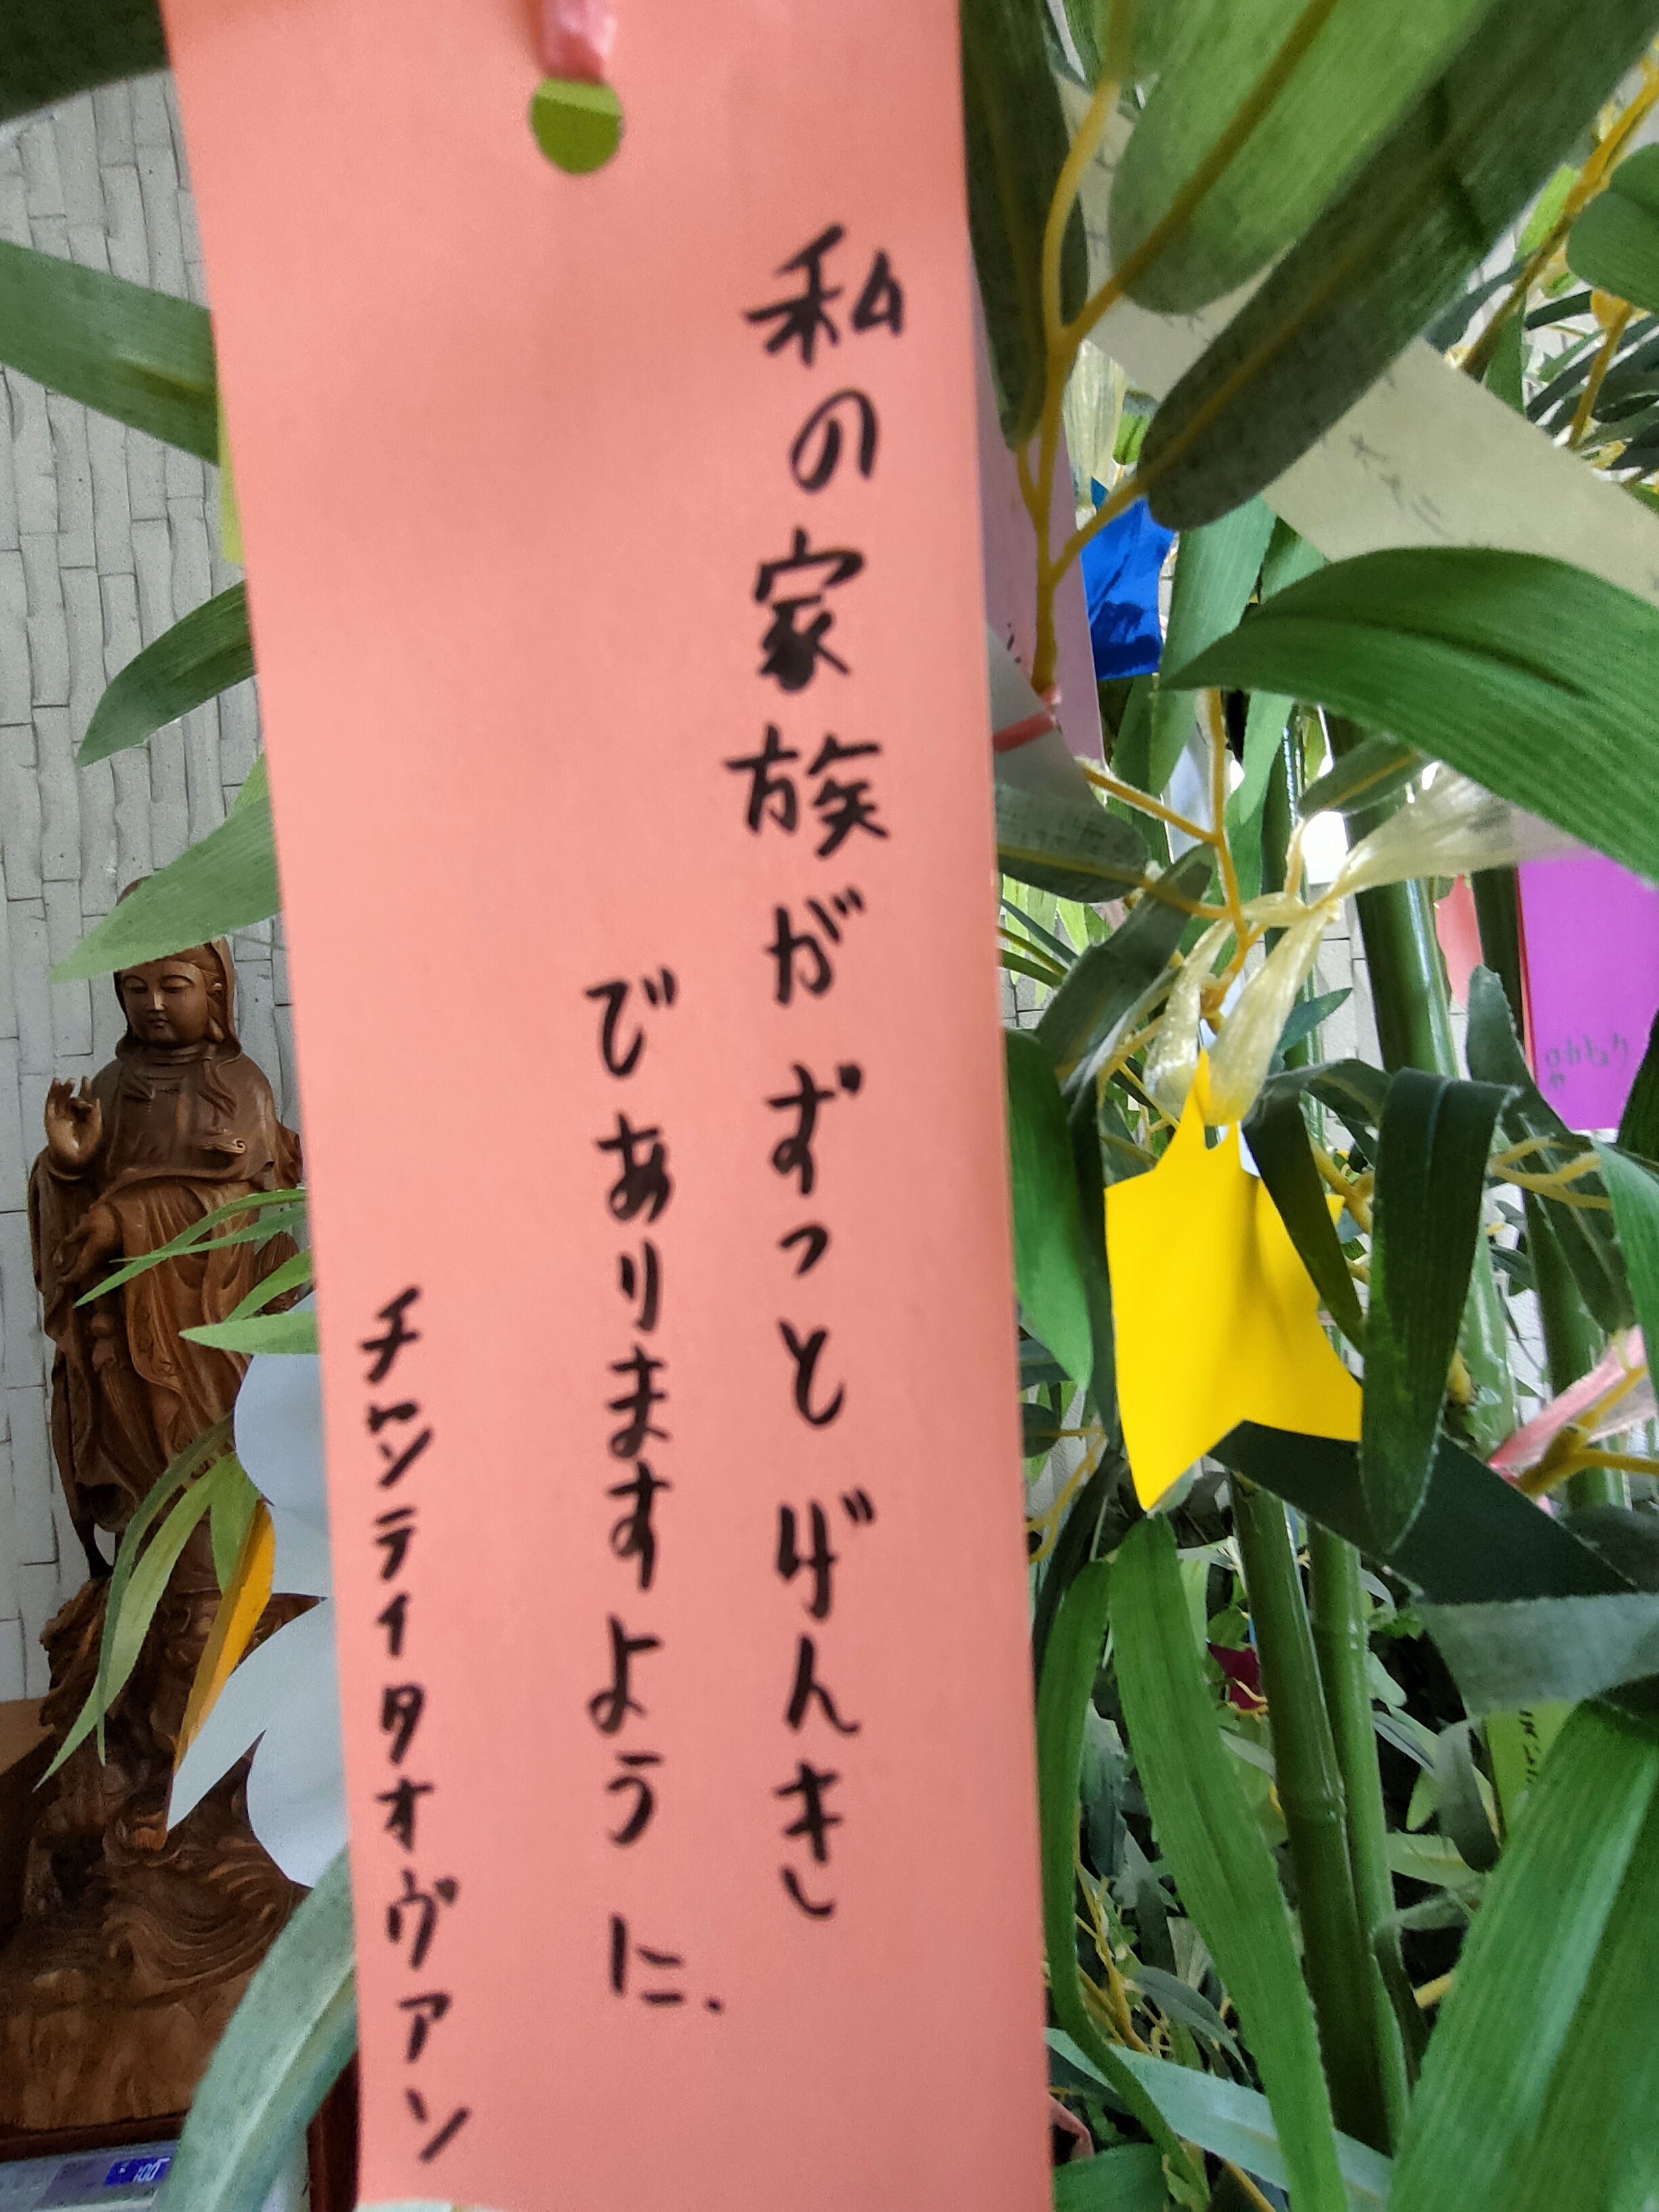 私の家族がずっとげんき
でありますように.
チャンティタオヴァン
100